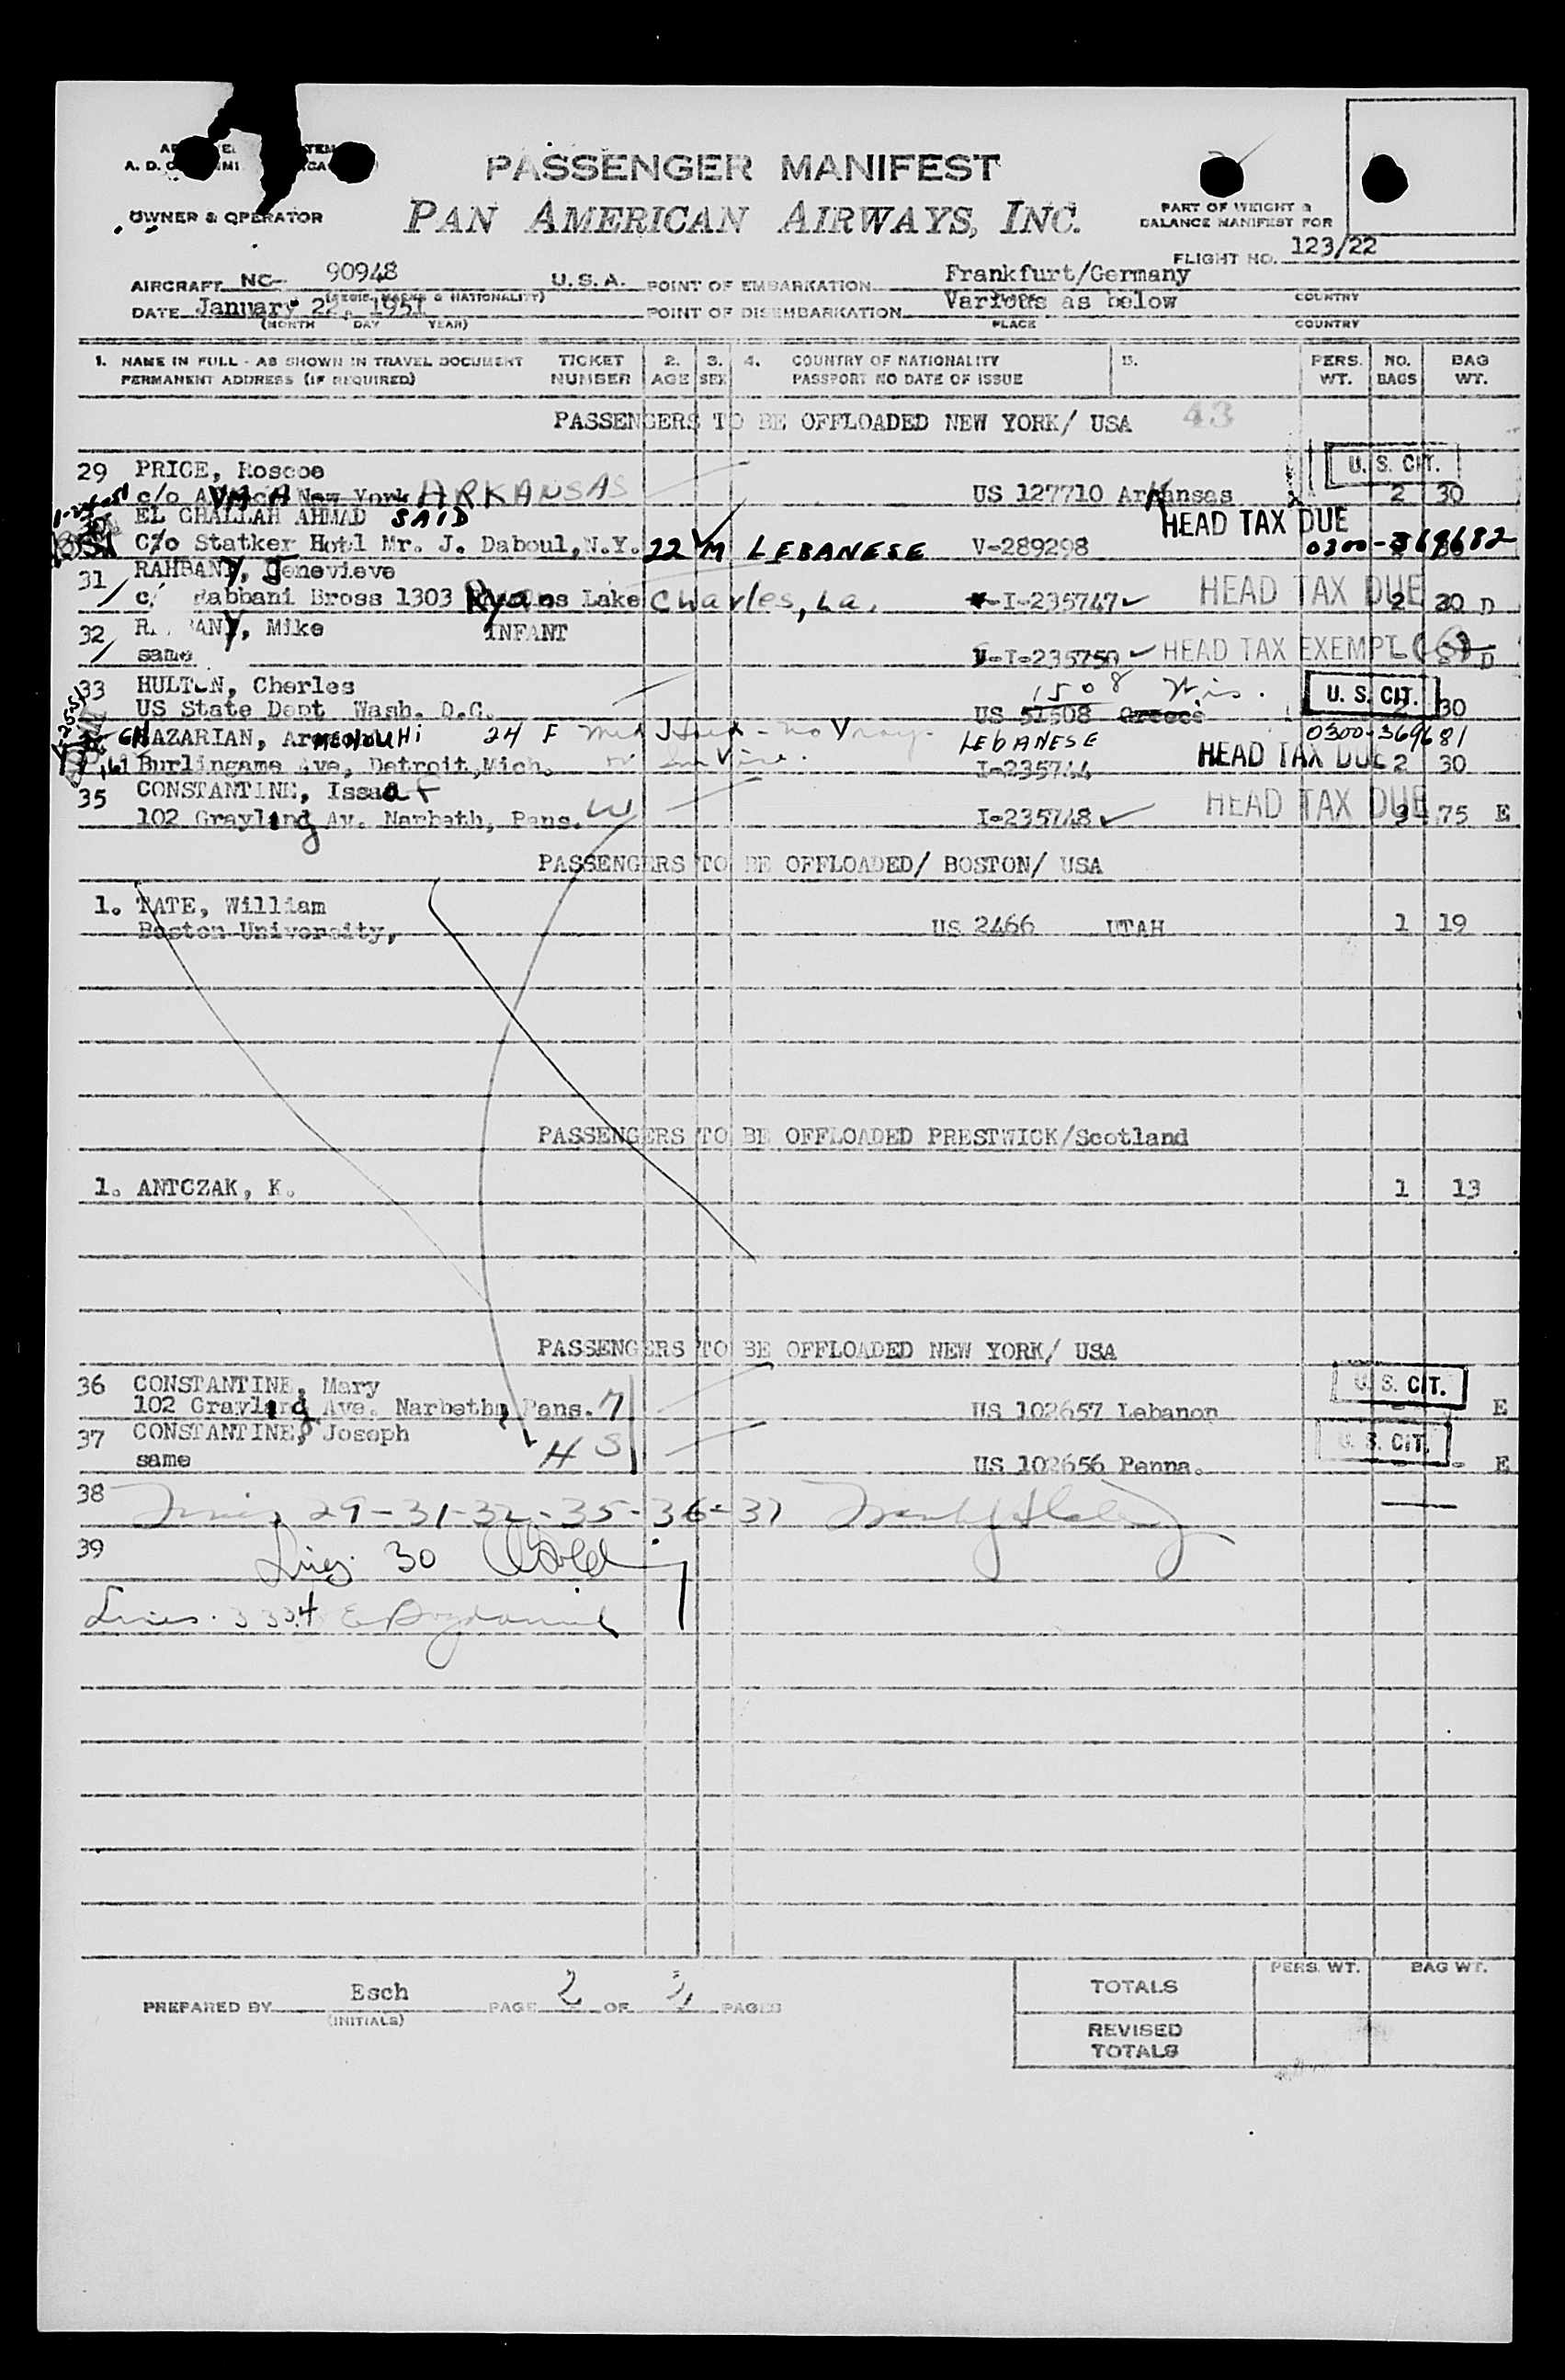 A. D.
OWNER & OPERATOR
PASSENGER MANIFEST
PAN AMERICAN AIRWAYS, INC.
PART OF WEIGHT &
BALANCE MANIFEST FOR
FLIGHT NO. 123/22
AIRCRAFT NC- 90948 U.S.A. POINT OF EMBARKATION Frankfurt/Germany
DATE January 22, 1951 POINT OF DISEMBARKATION Various as below
(MONTH DAY YEAR) PLACE COUNTRY
1. NAME IN FULL - AS SHOWN IN TRAVEL DOCUMENT TICKET 2. 3. 4. COUNTRY OF NATIONALITY 5. PERS. NO. BAG
PERMANENT ADDRESS (IF REQUIRED) NUMBER AGE SEX PASSPORT NO DATE OF ISSUE WT. BAGS WT.
PASSENGERS TO BE OFFLOADED NEW YORK/ USA 43
29 PRICE, Roscoe U. S. CIT.
c/o New York ARKANSAS US 127710 Arkansas 2 30
EL CHALLAH AHMAD SAID HEAD TAX DUE
C/o Statker Hotl Mr. J. Daboul, N.Y. 22 M LEBANESE V-289298 0300-369682
31 RAHBANY, Jenevieve
Rabbani Bross 1303 Ryan Lake Charles, La. I-235747 HEAD TAX DUE 2 20 D
32 Mike INFANT
same I-235750 HEAD TAX EXEMPT D
33 HULTEN, Cherles 1508 Wis. U. S. CIT.
US State Dept Wash. D.C. US 51508 Greece 30
GHAZARIAN, ARMENOUHI 24 F LEBANESE 0300-369681
161 Burlingame Ave, Detroit, Mich. I-235744 HEAD TAX DUE 2 30
35 CONSTANTINE, Issaaf
102 Grayling Av. Narbeth, Pens. W I-235748 HEAD TAX DUE 3 75 E
PASSENGERS TO BE OFFLOADED/ BOSTON/ USA
1. TATE, William
Boston University, US 2466 UTAH 1 19
PASSENGERS TO BE OFFLOADED PRESTWICK/Scotland
1. ANTCZAK, K. 1 13
PASSENGERS TO BE OFFLOADED NEW YORK/ USA
36 CONSTANTINE, Mary U. S. CIT.
102 Grayling Ave. Narbeth, Pens. US 102657 Lebanon - E
37 CONSTANTINE, Joseph U. S. CIT.
same H S US 102656 Penna. - - E
38 29-31-32-35-36-37
39 Lines 30
Lines. 33 34
PREPARED BY Esch PAGE 2 OF PAGES
(INITIALS)
PERS. WT. BAG WT.
TOTALS
REVISED
TOTALS